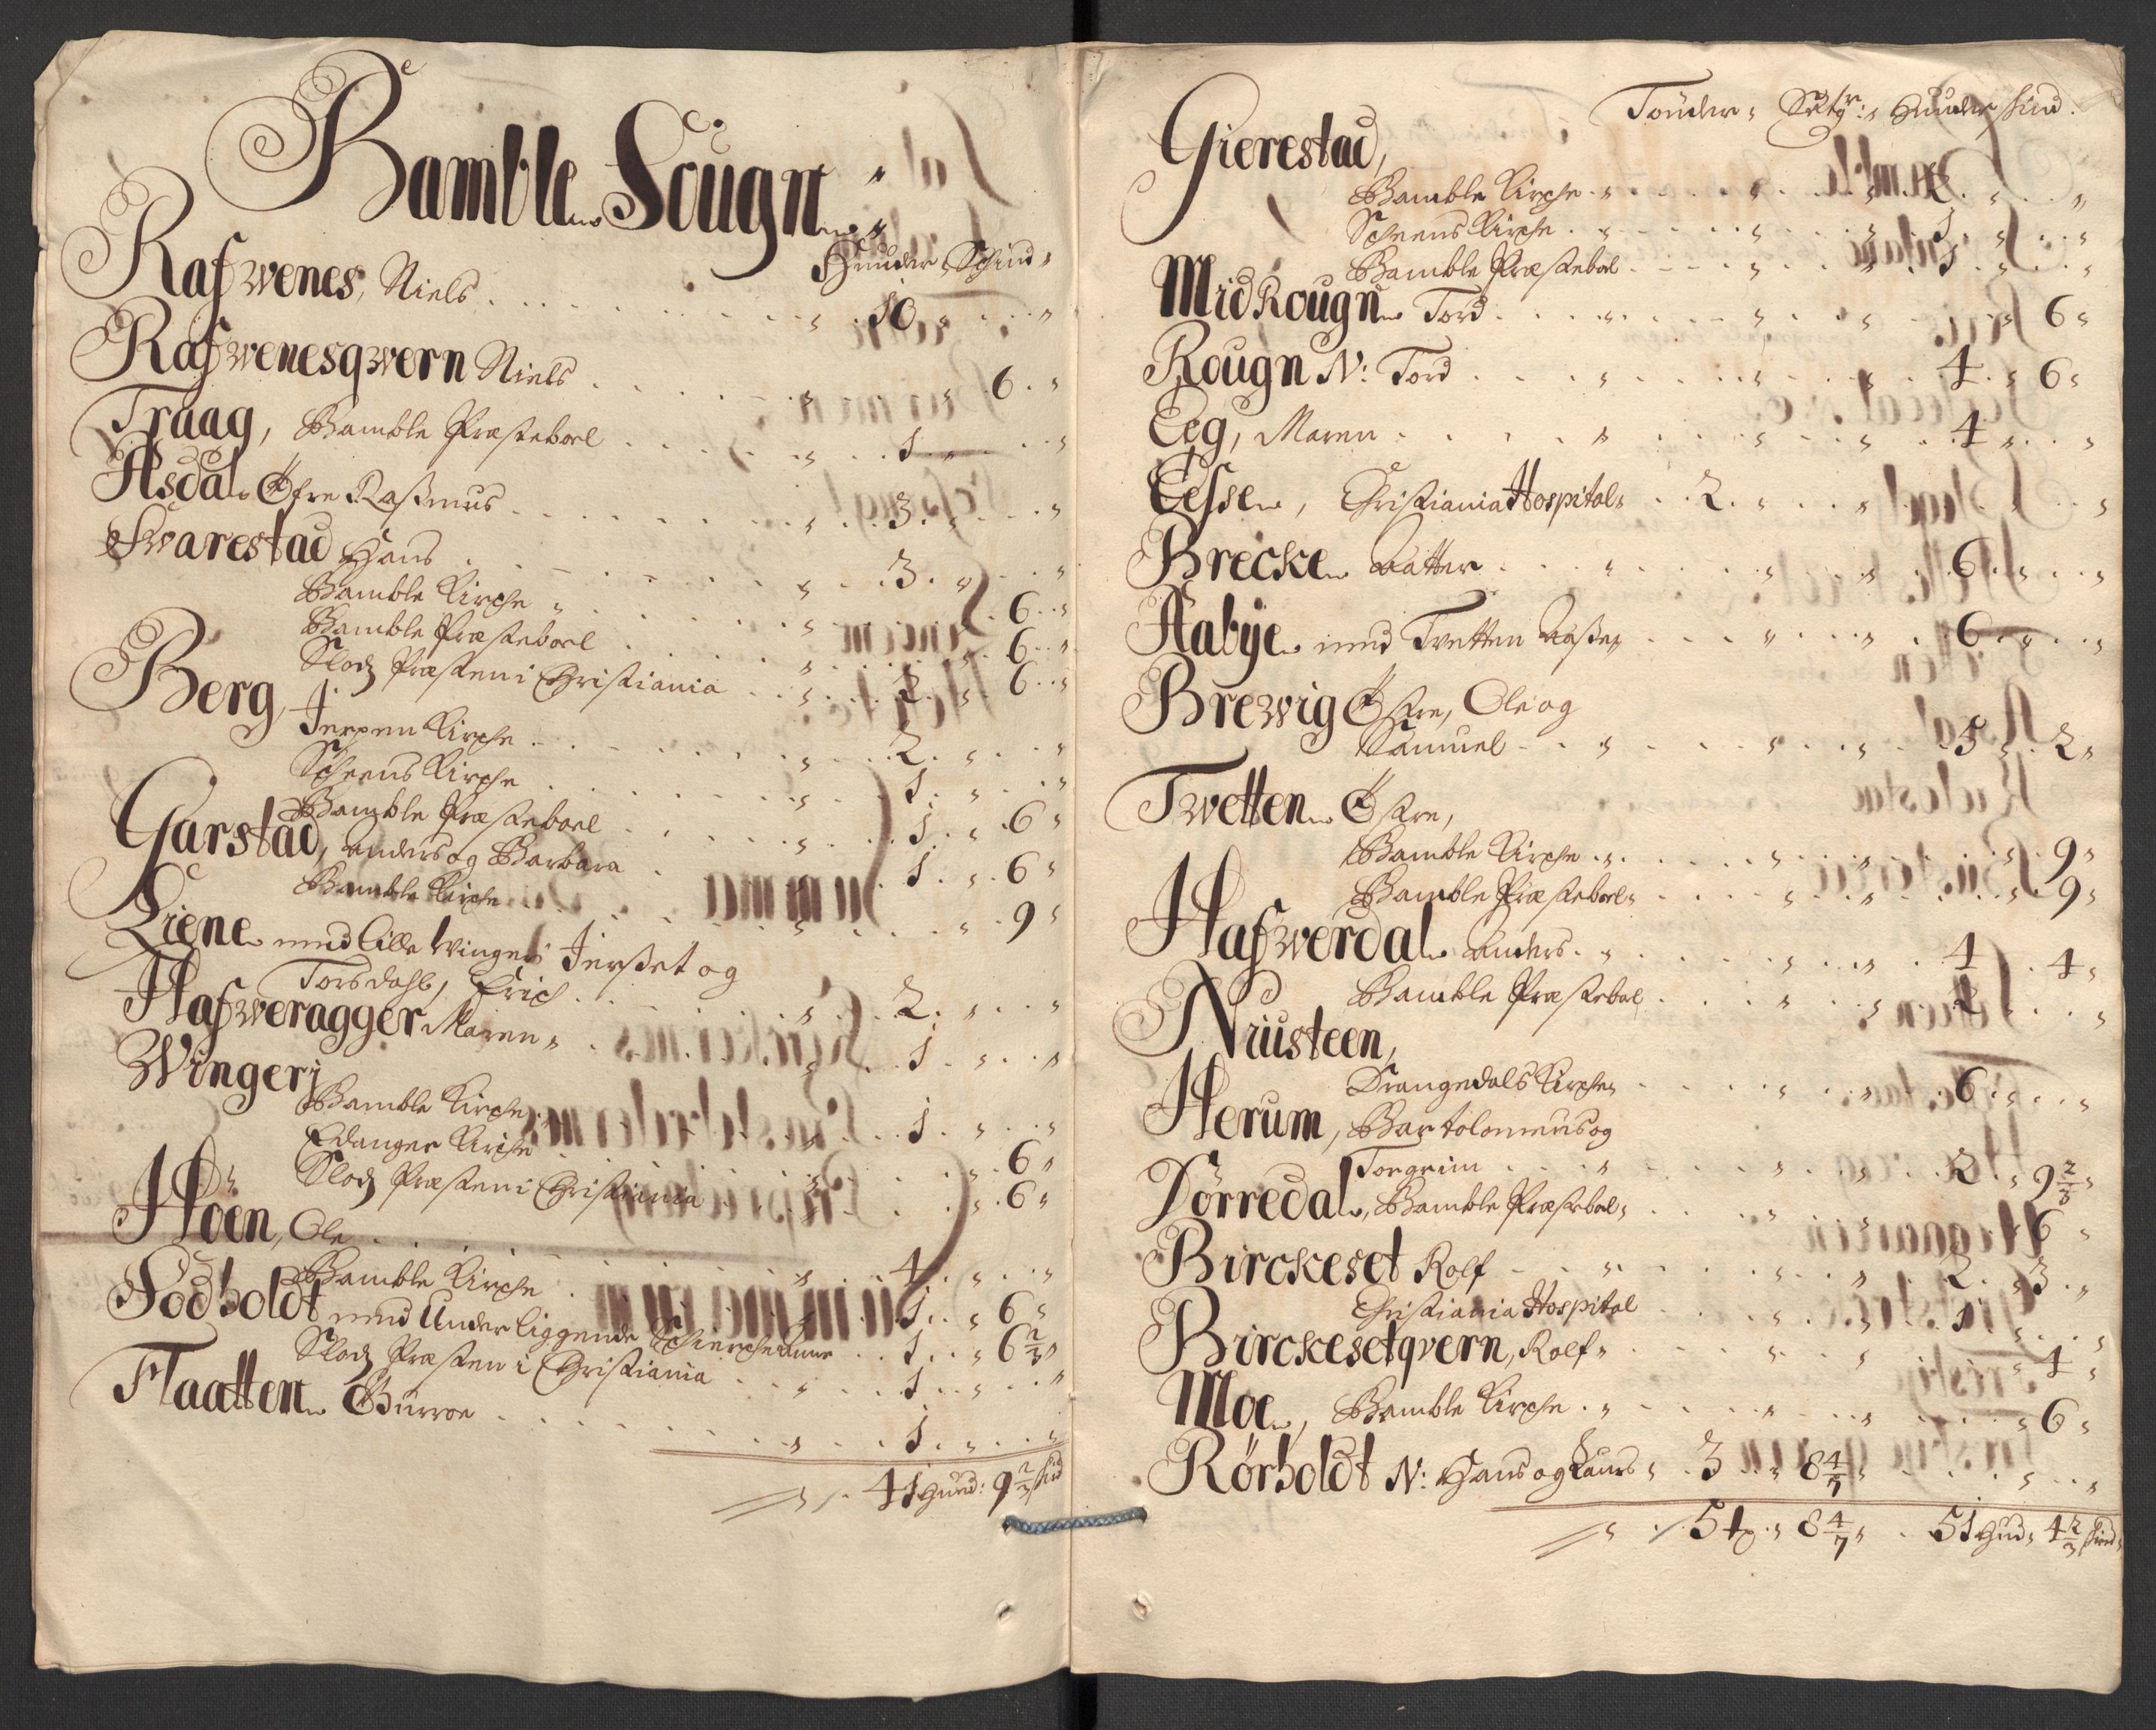 Bamble Sougn
Huuder, Schind,
Rafwenes, Niels 10
Rafwenesqwern Niels 6
Traag, Bamble Præsteboel 1
Asdal Øfre Rasmus 3
Swarestad Hans 3
Bamble Kirche 6
Bamble Præsteboel 6
Slodz Præsten i Christiania 2 6
Berg,
Jerpen Kirche 2
Scheens Kirche 1
Bamble Præsteboel 1 6
Garstad, Anders og Barbara 1 6
Bamble Kirche 9
Liene med lille Winger Jerset og
Torsdahl, Erich 2
Hafweragger Maren 1
Winger,
Bamble Kirche 1
Edanger Kirche 6
Slodz Præsten i Christiania 6
Hoen, Ole 4
Bamble Kirche 1 6
Födholdt med Underliggende 1 6 2/3
Slodz Præsten i Christiania 1
Flaatten Børroe 1
41 Hund: 9 2/3 skind
Tönder, Settr: Huuder skind.
Gierestad,
Bamble Kirche 2
Scheens Kirche 1
Bamble Præstebol 1
Mid Rougn Tord 6
Rougn N: Tord 4 6
Eeg, Maren 4
Eessen, Christiania Hospital 2
Brecke 6
Aabye med Twetten 6
Brewig Østre, Ole og
Samuel 5 2
Twetten Østre,
Bamble Kirche 9
Bamble Præsteboel 9
Hafwerdal Anders 4 4
Bamble Præstebol 2
Nriusteen,
Drangedals Kirche 6
Herum, Bartolomeus og
Torgrim 2 9 2/3
Dörredal, Bamble Præstebol 6
Birckeset Rolf 2 3
Christiania Hospital 1
Birckesetqvern, Rolf 4
Moe, Bamble Kirche 6
Rörholdt N: Hans og Laurs 3 8 4/7
5 tø 8 4/7 51 Hud 4 2/3 skind